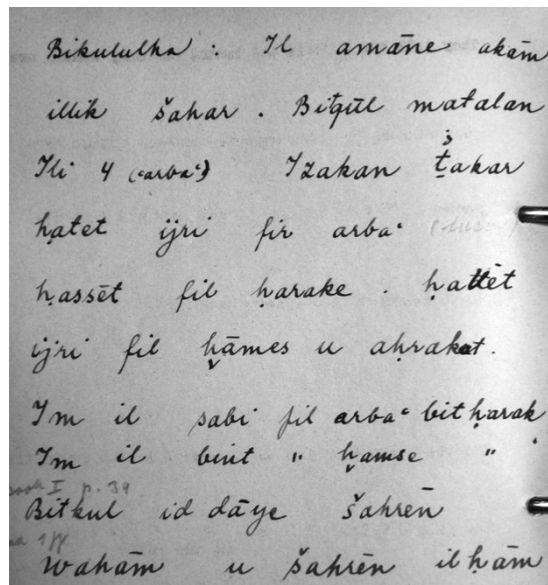 Bikululha : Il amāne akām
illik šahar . Biṭqūl matalan
Ili 4 (arbaʿ) Izakan ṯakar
ḥatet ijri fir arbaʿ
ḥassēt fil ḥarake . ḥaṭṭēt
ijri fil ḫāmes u aḥrakat.
Im il sabi fil arbaʿ bitḥarak
Im il bint " ḫamse " .
book I p. 39
Bitkul id dāye šahrēn
waḥām u šahrēn il ḥām